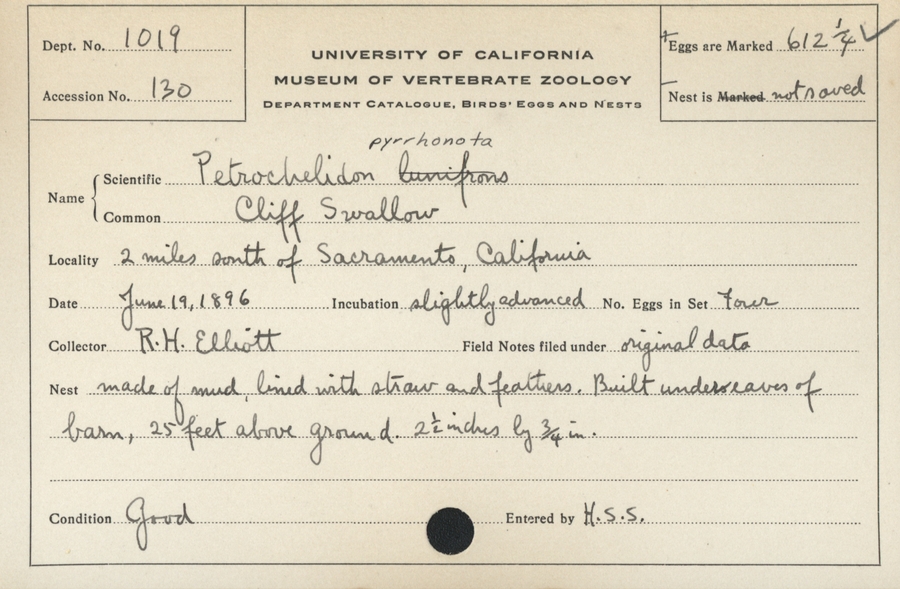 Dept. No. 1019
Accession No. 130
UNIVERSITY OF CALIFORNIA
MUSEUM OF VERTEBRATE ZOOLOGY
DEPARTMENT CATALOGUE, BIRDS' EGGS AND NESTS
Eggs are Marked 612 1/4 ✓
Nest is Marked not saved
pyrrhonota
Name Scientific Petrochelidon lunifrons
Common Cliff Swallow
Locality 2 miles south of Sacramento, California
Date June 19, 1896 Incubation slightly advanced No. Eggs in Set Four
Collector R.H. Elliott Field Notes filed under original data
Nest made of mud, lined with straw and feathers. Built under eaves of
barn, 25 feet above ground. 2 1/2 inches by 3/4 in.
Condition Good Entered by H.S.S.